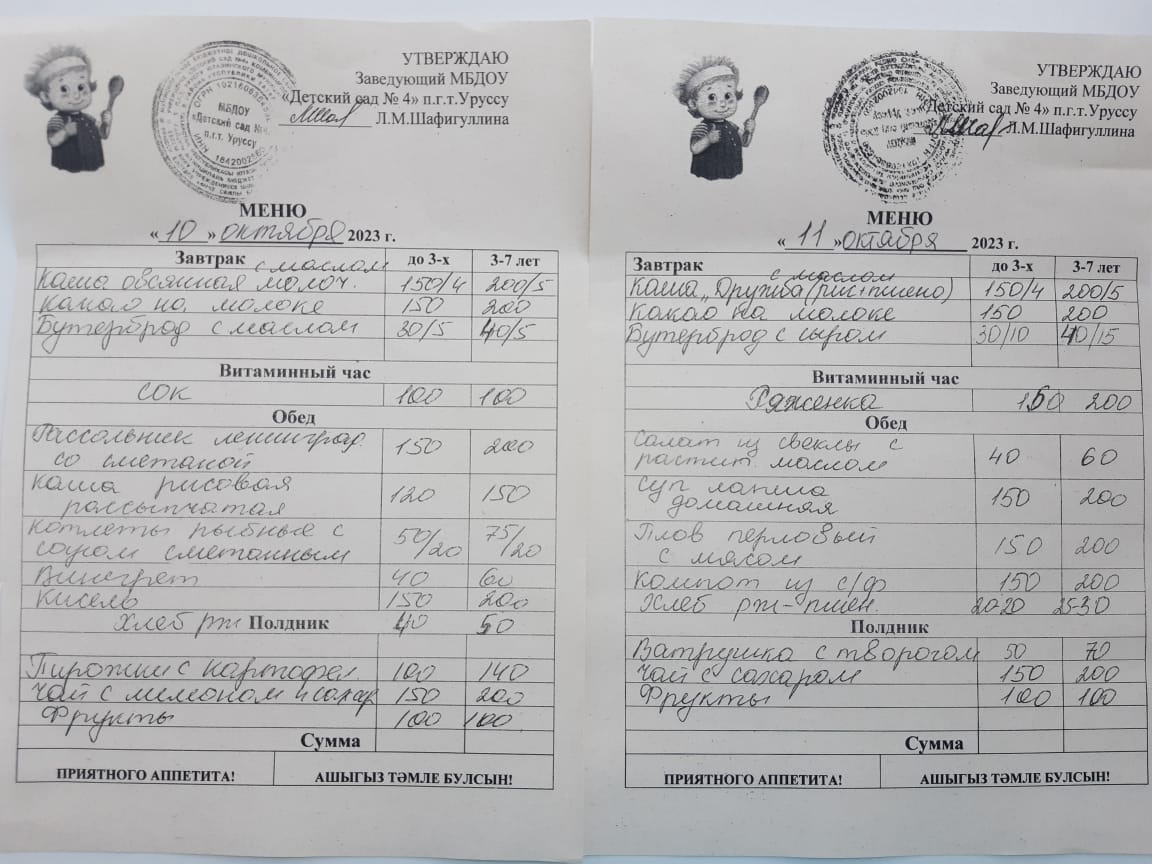 УТВЕРЖДАЮ
Заведующий МБДОУ
«Детский сад № 4» п.г.т.Уруссу
Л.М.Шафигуллина
МБДОУ
«Детский сад №4»
п.г.т. Уруссу
МЕНЮ
«10» октября 2023 г.
Завтрак до 3-х 3-7 лет
с маслом
Каша овсянная молоч. 150/4 200/5
Какао на молоке 150 200
Бутерброд с маслом 30/5 40/5
Витаминный час
сок 100 100
Обед
Рассольник ленинград. 150 200
со сметаной
Каша рисовая 120 150
рассыпчатая
Котлеты рыбные с 50/20 75/20
соусом сметанным
Винегрет 40 60
Кисель 150 200
Хлеб рж Полдник 40 50
Пирожки с картофел. 100 140
Чай с лимоном и сахар 150 200
Фрукты 100 100
Сумма
ПРИЯТНОГО АППЕТИТА! АШЫГЫЗ ТӘМЛЕ БУЛСЫН!
УТВЕРЖДАЮ
Заведующий МБДОУ
«Детский сад № 4» п.г.т.Уруссу
Л.М.Шафигуллина
МЕНЮ
«11» октября 2023 г.
Завтрак до 3-х 3-7 лет
с маслом
Каша „Дружба (рис+пшено) 150/4 200/5
Какао на молоке 150 200
Бутерброд с сыром 30/10 40/15
Витаминный час
Ряженка 150 200
Обед
Салат из свеклы с 40 60
растит. маслом
Суп лапша 150 200
домашняя
Плов перловый 150 200
с мясом
Компот из с/ф 150 200
Хлеб рж-пшен. 20-20 25-30
Полдник
Ватрушка с творогом 50 70
Чай с сахаром 150 200
Фрукты 100 100
Сумма
ПРИЯТНОГО АППЕТИТА! АШЫГЫЗ ТӘМЛЕ БУЛСЫН!